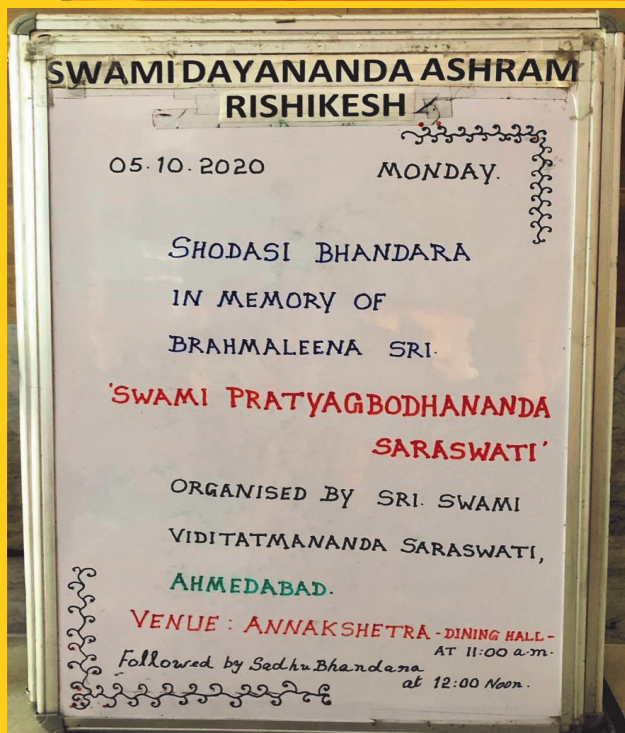 SWAMI DAYANANDA ASHRAM
RISHIKESH
05.10.2020 MONDAY.
SHODASI BHANDARA
IN MEMORY OF
BRAHMALEENA SRI.
'SWAMI PRATYAGBODHANANDA
SARASWATI'
ORGANISED BY SRI. SWAMI
VIDITATMANANDA SARASWATI,
AHMEDABAD.
VENUE : ANNAKSHETRA - DINING HALL -
AT 11:00 a.m.
Followed by Sadhu Bhandana
at 12:00 Noon.